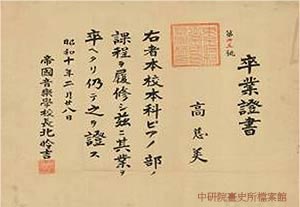 卒業證書
高慈美
右者本校本科ピアノ部ノ
課程ヲ履修シ茲ニ其業ヲ
卒ヘタリ仍テ之ヲ證ス
昭和十年二月廿八日
帝國音樂學校長北昤吉
中研院臺史所檔案館